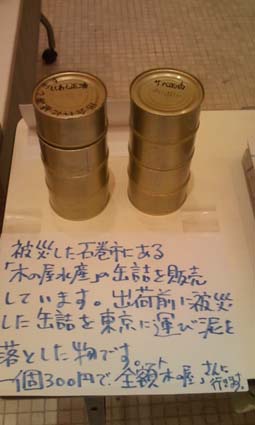 被災した石巻市にある
「木の屋水産」の缶詰を販売
しています。出荷前に被災
した缶詰を東京に運び泥を
落とした物です。
一個300円で、全額木の屋さんに
行きます。